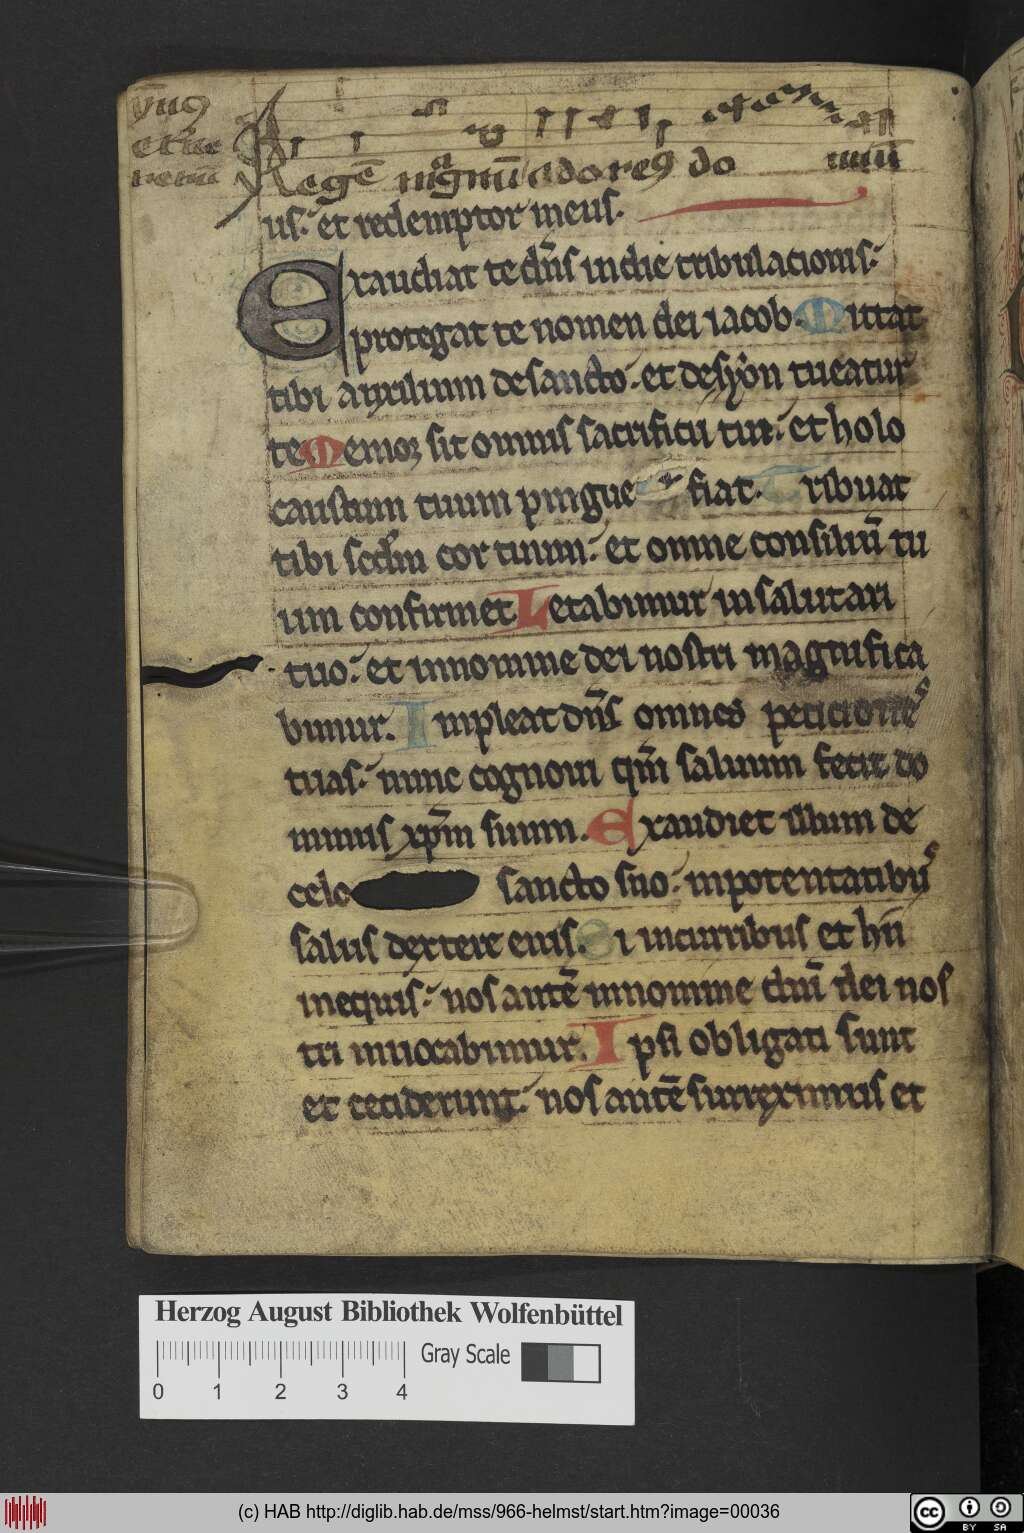 Regē magnū adoreꝰ do minū
us. et redemptor meus.
Exaudiat te dn̄s in die tribulationis:
protegat te nomen dei iacob. Mittat
tibi auxilium de sancto. et de syon tueatur
te. Memor sit omnis sacrificii tui: et holo
caustum tuum pingue fiat. Tribuat
tibi scd̄m cor tuum: et omne consiliū tu
um confirmet. Letabimur in salutari
tuo: et in nomine dei nostri magnifica
bimur. Impleat dn̄s omnes peticiones
tuas: nunc cognoui qm̄ saluum fecit do
minus xp̄m suum. Exaudiet illum de
celo sancto suo: in potentatibus
salus dextere eius. Hi in curribus et hii
in equis: nos autē in nomine dn̄i dei nos
tri inuocabimur. Ipsi obligati sunt
et ceciderunt: nos autē surreximus et
Herzog August Bibliothek Wolfenbüttel
Gray Scale
0 1 2 3 4
(c) HAB http://diglib.hab.de/mss/966-helmst/start.htm?image=00036
cc BY SA